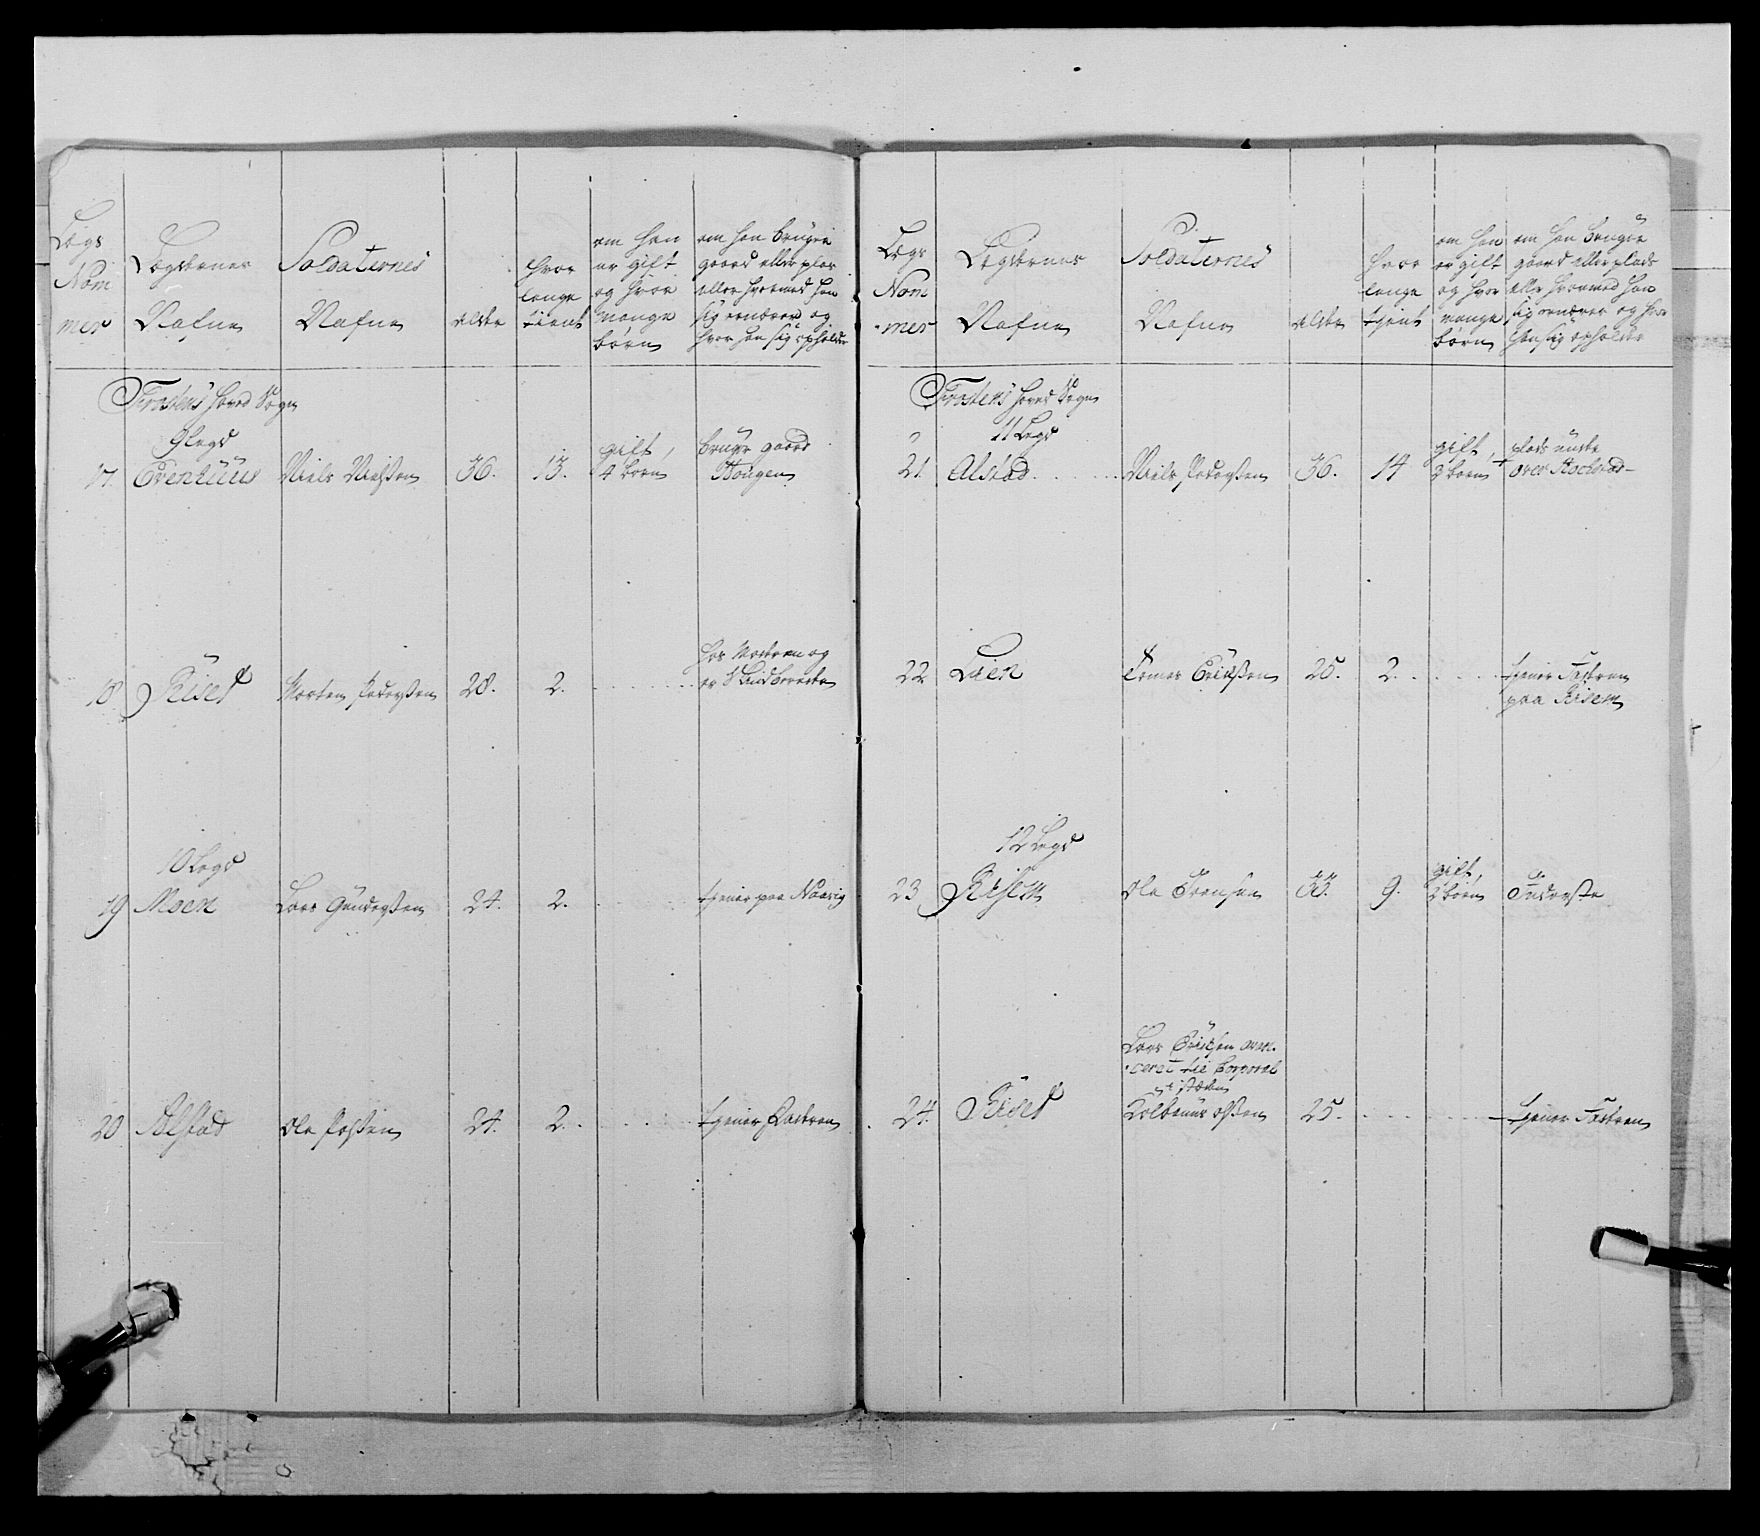 Legs
Nom
mer
Legdernes
Nafne
Soldaternes
Nafne
alder
hvor
lenge
tient
om han
er gift
og hvor
mange
børn
om han bruger
gaard eller plas
eller hvormed han
sig ernærer og
hvor han sig opholder
Frostens hoved Sogn
9 Legd
17. Eventuus Niels Nielsen 36. 13. gift, 4 børn bruger gaard Hougen
18. Riset Morten Pedersen 28. 2. hos Moderen og er
19 10 Legd
Moen Lars Gundersen 24. 2. tjener paa Naavig
20 Alstad Ole Jossen 24. 2. tjener Faderen
Legs
Nom
mer
Legdernes
Nafne
Soldaternes
Nafne
alder
hvor
lenge
tjent
om han
er gift
og hvor
mange
børn
om han bruger
gaard eller plads
eller hvormed han
sig ernærer og hvor
han sig opholder
Frostens hoved Sogn
11 Legd
21. Alstad Niels Pedersen 36. 14 gift, 2 børn plads under
22 Lien Tomas Erichsen 25. 2. tjener Faderen
paa Risem
12 Legd
23 Risem Ole Jrensen 33. 9. gift, 2 børn Inderste
Lars Erichsen avan-
ceret til Corporal
i steden
24. Riset Colbanus Olsen 25. tjener Faderen